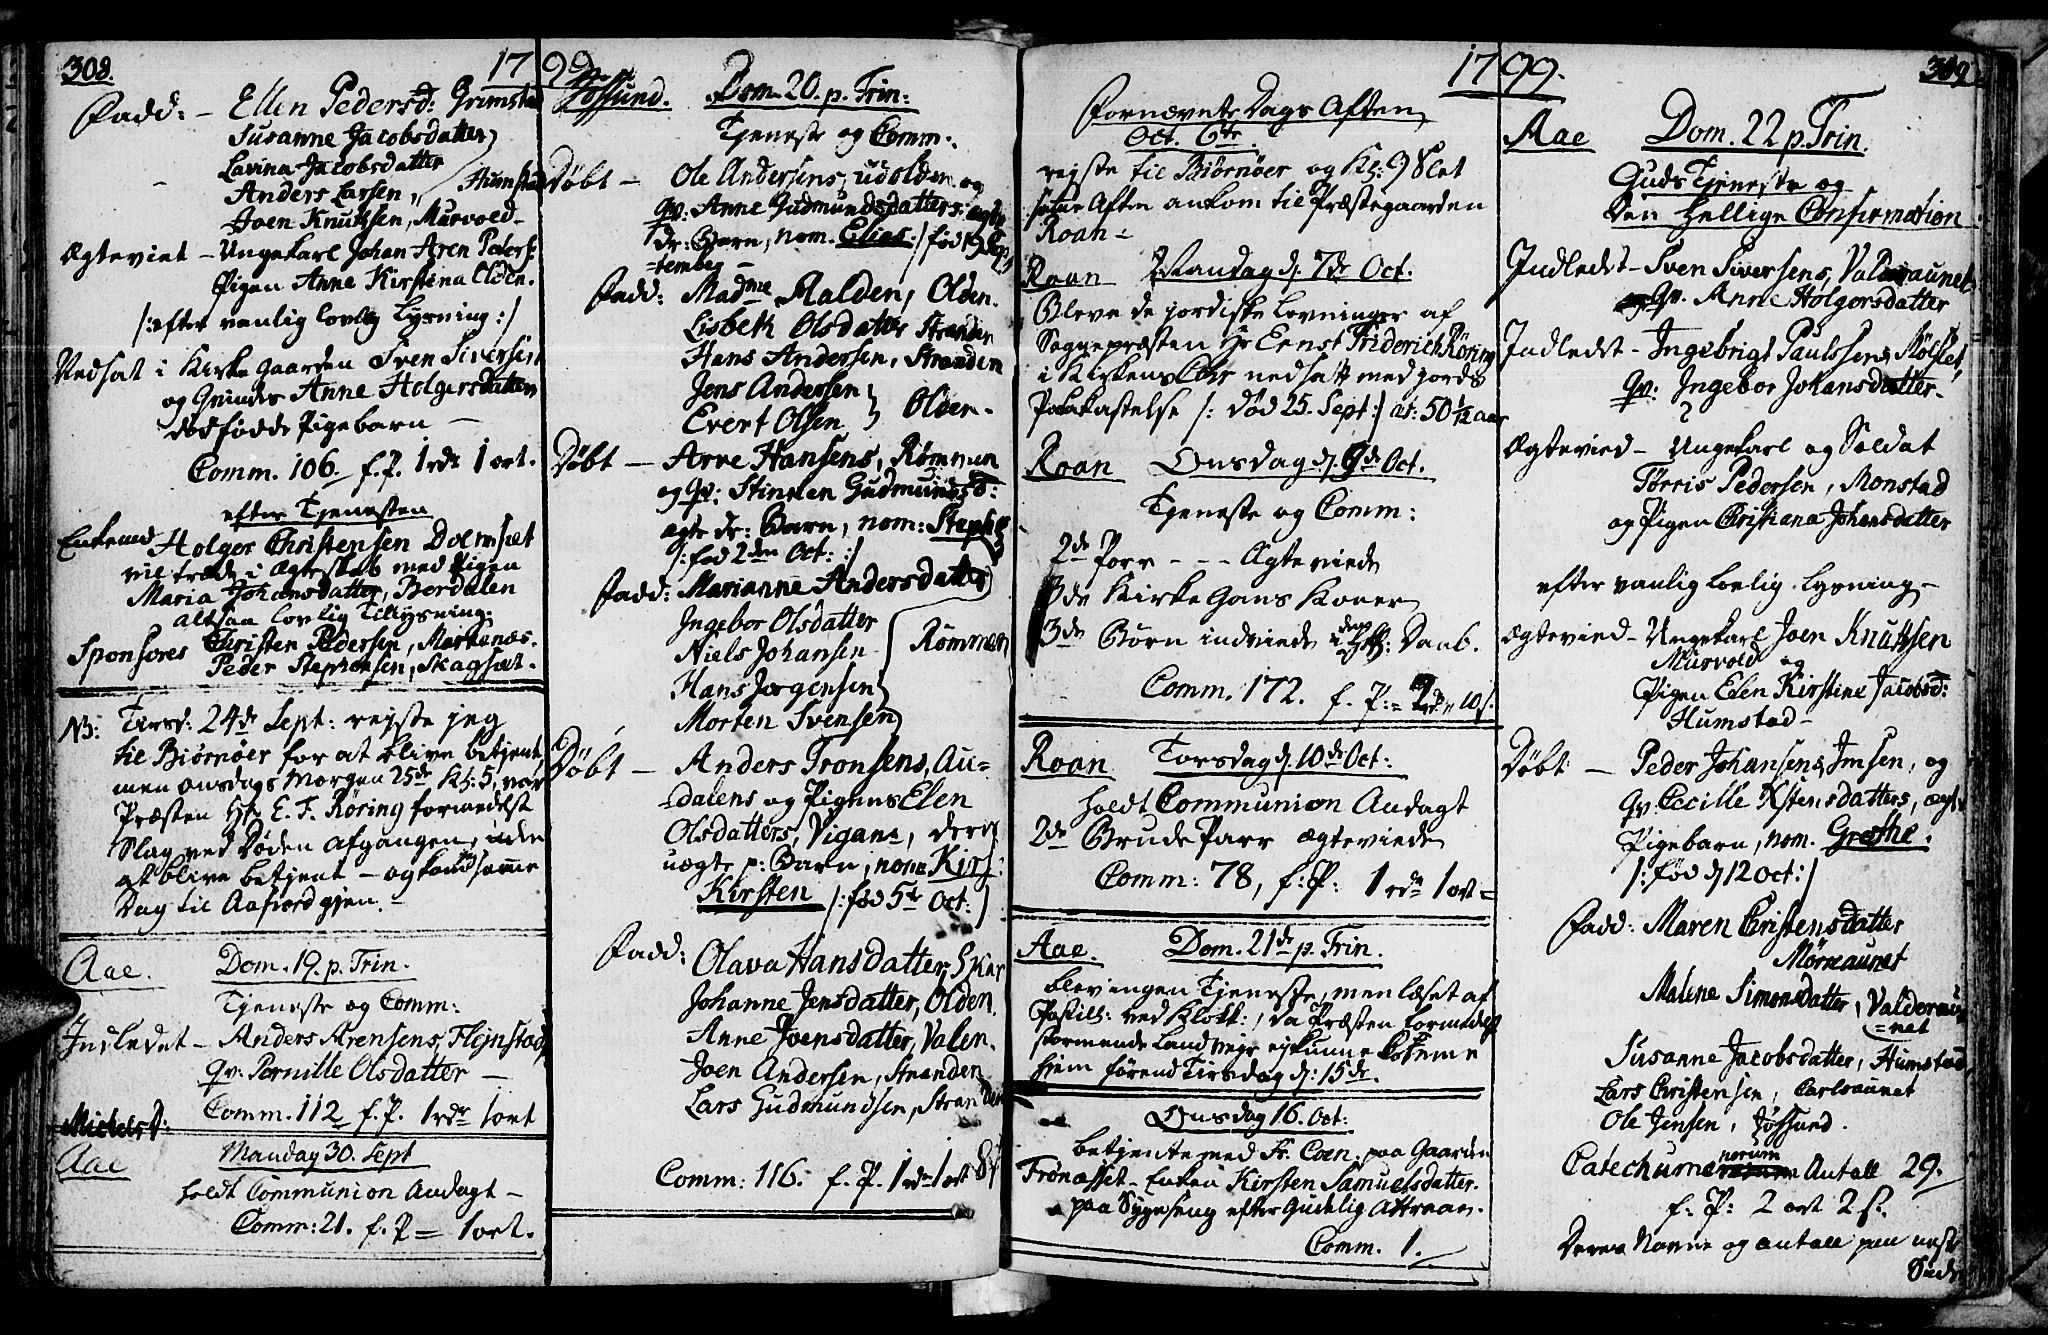 308.
1799
Fadd: – Ellen Pedersd: Grimstad
Susanne Jacobsdatter
Lavina Jacobsdatter
Anders Larsen,, Humstad
Joen Knutsen, Murvold
Ægteviet – Ungekarl Johan Aren Peders:
Pigen Anne Kirstena Olden.
/: efter vanlig lovlig Lysning :/
Nedsat i Kirkegaarden Sven Siversen
og Qvindes Anne Holgersdatters
dødfødde Pigebarn –
Comm. 106. f.P. 1 rdr 1 ort.
efter Tjenesten
Enkemd Holger Christensen Doemsæt
vil træde i Ægteskab med Pigen
Maria Johansdatter, Berdalen
altsaa lovlig Tillysning.
Sponsores Christen Pedersen, Markenæs.
Peder Stephensen, Skagsæt.
NB: Tirsd: 24de Sept: rejste jeg
til Biørnøer for at blive betjent,
men onsdags Morgen 25de Kl: 5, var
Præsten Hr. E. F. Røring formedelst
Slag ved Døden afgangen, uden
at blive betjent – og kom samme
Dag til Aafiord igjen. –
Aae. Dom. 19. p. Trin.
Tjeneste og Comm:
Indledet – Anders Arensens, Flejnstad
qv: Pernille Olsdatter –
Comm. 112 f. P. 1 rdr 1 ort
Michelsd:
Aae Mandag 30. Sept
holdt Communion Andagt –
Comm: 21. f. P = 1 ort.
Jøssund. Dom. 20. p. Trin:
Tjeneste og Comm.
Døbt – Ole Andersens, udolden og
qv. Anne Gudmundsdatters ægte
dr: Barn, nom. Elias :/ fød 19 Sep-
tember –
Fadd: Madme Malden, Olden.
Lisbeth Olsdatter Stranden
Hans Andersen, Stranden
Jens Andersen
Evert Olsen } Olden.
Døbt – Arve Hansens, Rømmen
og qv: Stinken Gudmundsd:
ægte dr: Barn, nom: Stephen
/: fød 2den Oct: :/
Fadd: Marianne Andersdatter
Ingebor Olsdatter
Niels Johansen
Hans Jørgensen
Morten Svensen
Rømmen
Døbt – Anders Tronsens, Au-
dalens og Pigens Elen
Olsdatters, Vigane, deres
uægte p: Barn, nom Kirs:
Kirsten /: fød 5te Oct: /
Fadd: Olava Hansdatter, Skar
Johanne Jensdatter, Olden.
Anne Joensdatter, Valen.
Joen Andersen, Stranden
Lars Gudmundsen, Stranden
Comm: 116. f. P. 1 rdr 1 ort 8 f
1799.
309.
Fornævnte Dags Aften
Oct. 6te
rejste til Biørnøer og Kl: 9 Slet
samme Aften ankom til Præstegaarden
Roan –
Roan Mandag d. 7de Oct.
Bleve de jordiske Levninger af
Sognepræsten Hr Ernst Friderich Røring
i Kirkens Chor nedsatt med jords
Paakastelse /: død 25. Sept :/ at: 50 1/2 aar
Roan Onsdag d. 9de Oct.
Tjeneste og Comm:
2de Parr - - - Ægteviede
3de Kirke Gans Koner
3de Børn indviede i den Xstl: Daab.
Comm. 172. f. P: = 2 rdr 10 s.
Roan Torsdag d. 10de Oct:
holdt Communion Andagt
2de Brude Parr ægteviede
Comm: 78, f: P: 1 rdr 1 ort =
Aae. Dom. 21de p. Trin.
blev ingen Tjeneste, men læset af
Postill: ved Klokk:, da Præsten formedelst
stormende Landvejr ej kunne komme
hiem førend Tirsdag d: 15de.
Onsdag 16. Oct:
betjente med Sr. Coen. paa Gaarden
Trønæsset – Enken Kirsten Samuelsdatter.
paa Sygeseng efter Gudelig Attraae.
Comm. 1.
Aae Dom. 22 p. Trin.
Guds Tjeneste og
den hellige Confirmation
Indledet – Sven Siversens, Valderaunet
qv. Anne Holgersdatter
Indledet – Ingebrigt Paulssens Mølslet,
qv: Ingebor Johansdatter.
Ægteviед – Ungekarl og Soldat
Tørris Pedersen, Monstad
og Pigen Christiana Johansdatter
efter vanlig lovlig Lysning –
Ægteviед – Ungekarl Joen Knutsen
Murvold og
Pigen Elen Kirstine Jacobsd:
Humstad –
Døbt – Peder Johansens Imsen, og
qv. Cecille Xstensdatters, ægte
Pigebarn, nom. Grethe.
/: fød d 12 Oct: /
Fadd: Maren Christensdatter
Mørriaunet
Malene Simonsdatter, Valderau-
=net
Susanne Jacobsdatter, Humstad,
Lars Christensen, Carlsaunet
Ole Jensen, Jøssund.
Catechumenorum Antall 29.
f: P: 2 ort 2 s.
Deres Navne og antall paa næste
Side